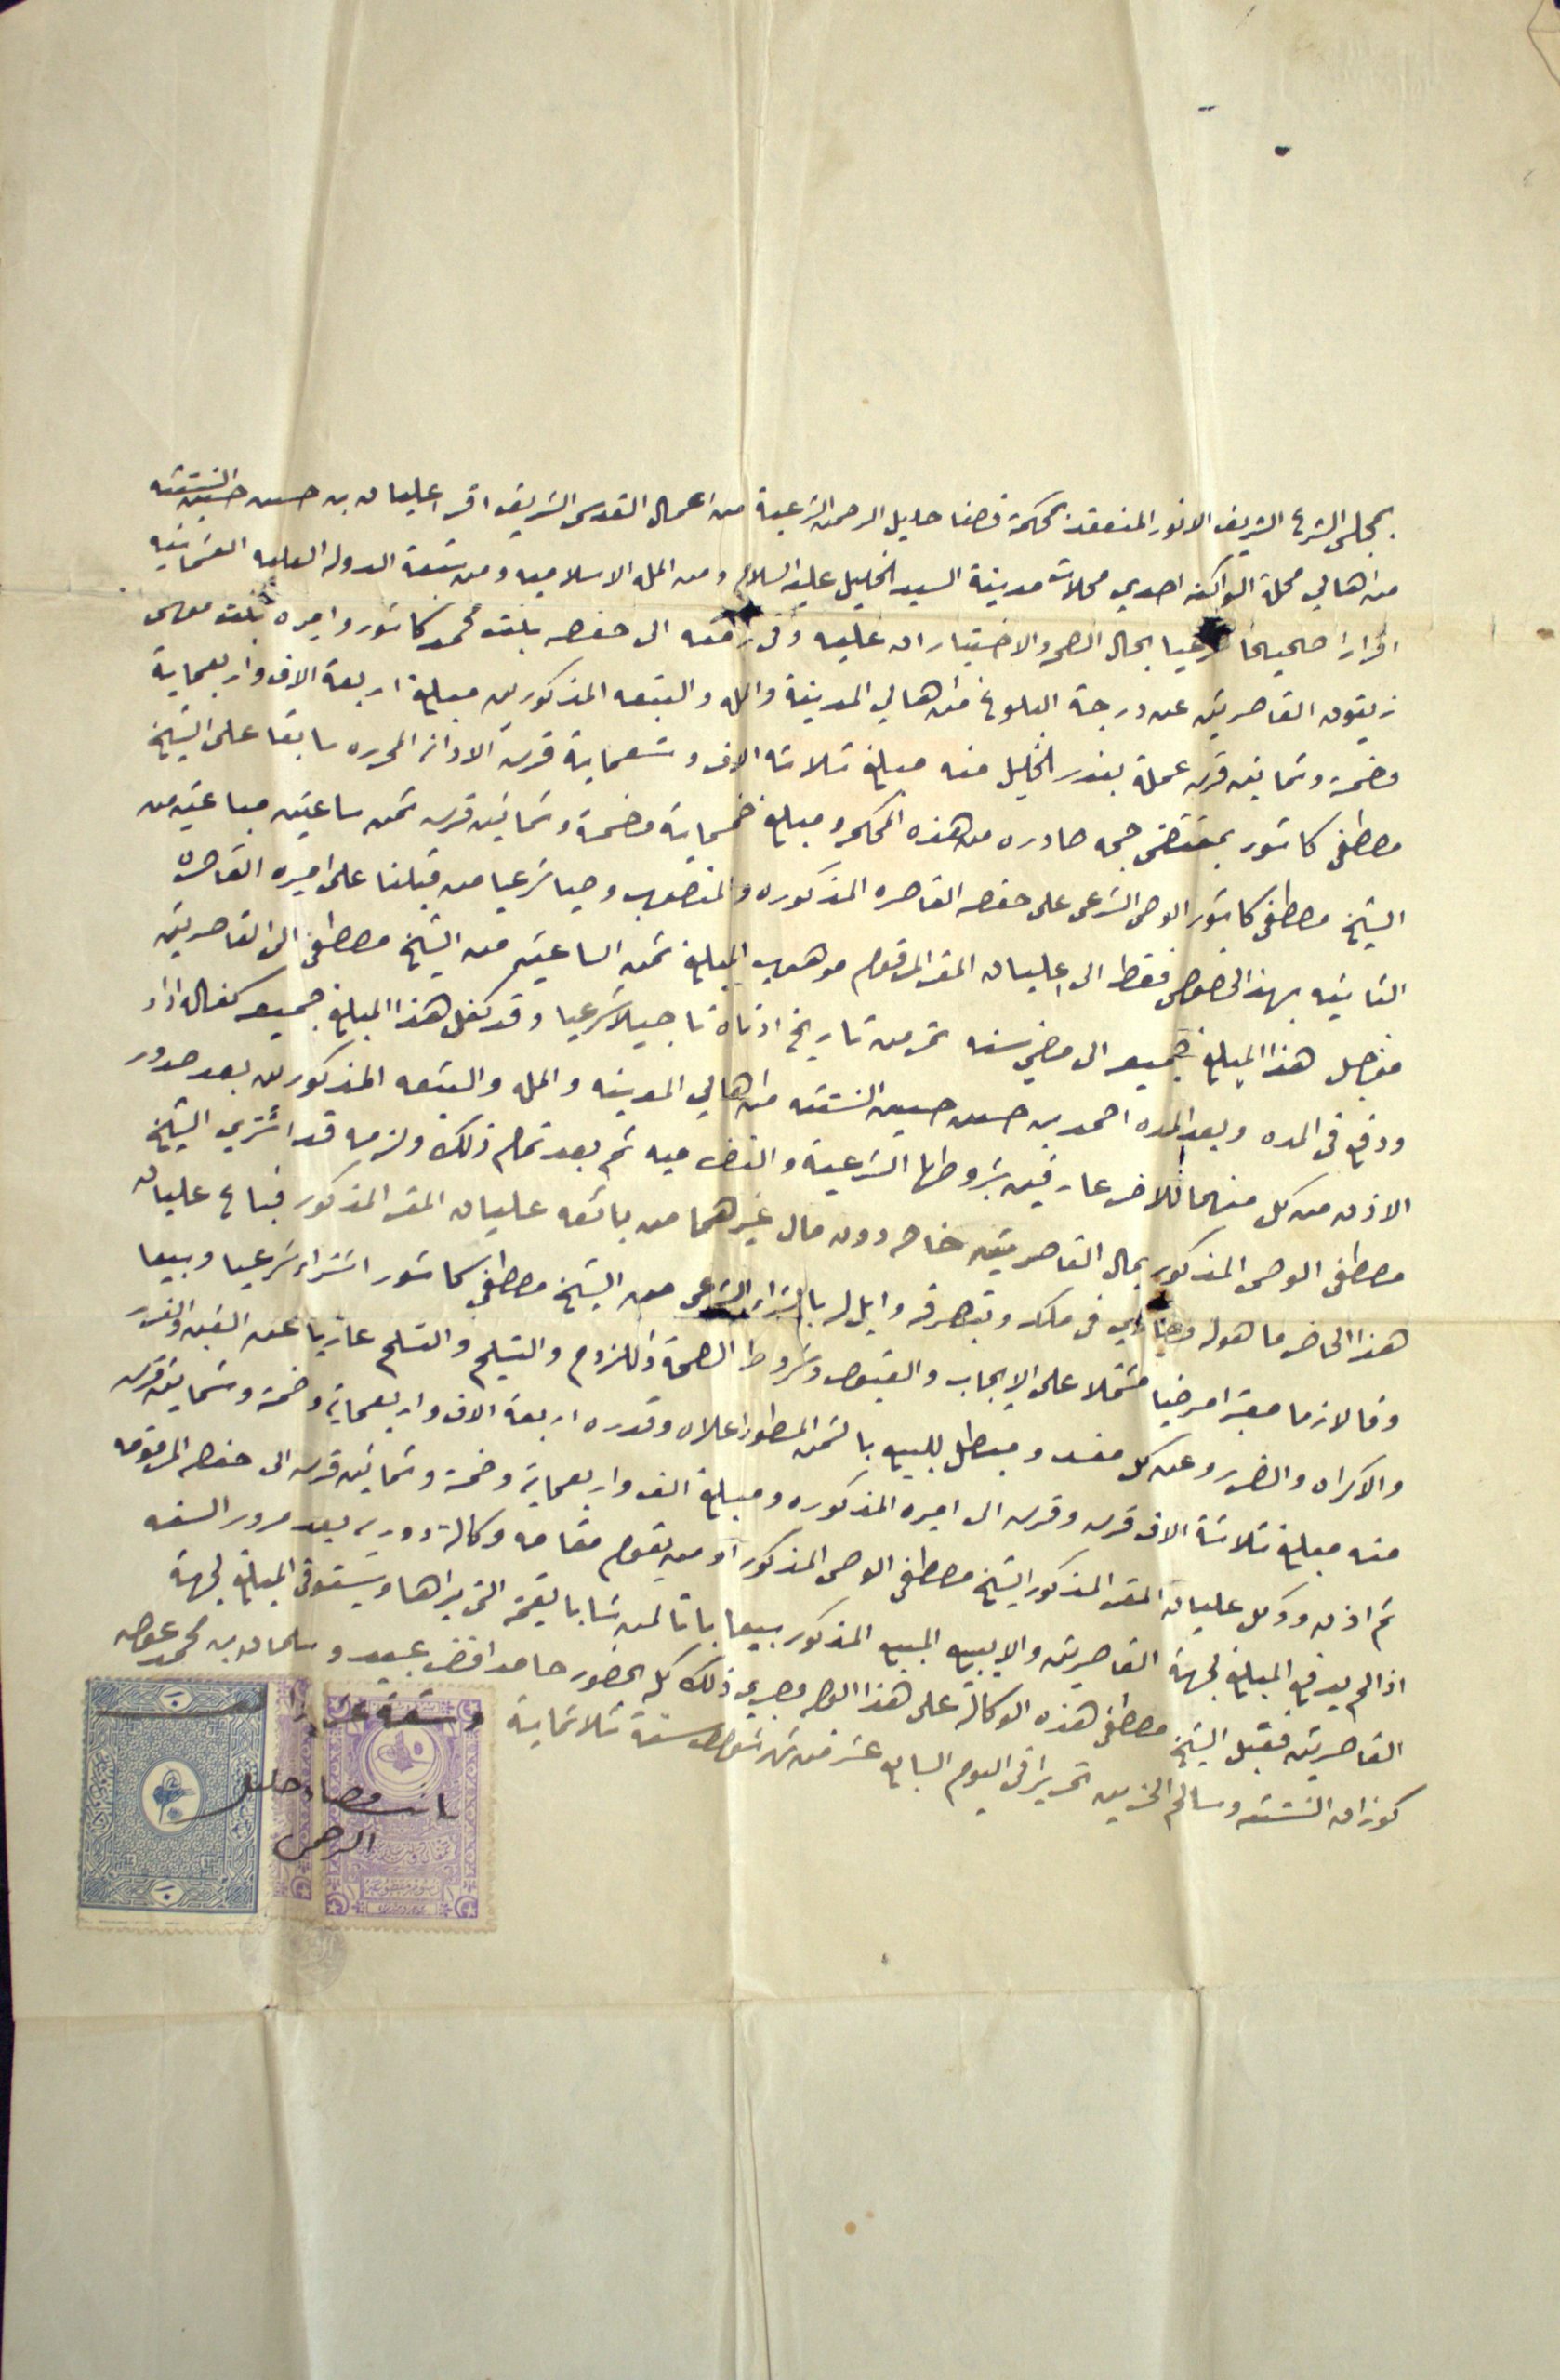 بمجلس الشرع الشريف الانور المنعقد بمحكمة قضا خليل الرحمن الشرعية من اعمال القدس الشريف اقر اعليان بن حسين حسين النتشه
من اهالي محلة السواكنه احدي محلات مدينة السيد الخليل عليه السلام ومن المله الاسلاميه ومن تبعة الدوله العليه العثمانيه
اقرارا صحيحا شرعيا بحال الصحه والاختيار ان عليه وفي ذمته الى حفصه بنت محمد كاتور واميره بنت موسى
زيتون القاصرتين عن درجة البلوغ من اهالي المدينة والمله والتبعه المذكورين مبلغ اربعة الاف واربعماية
وخمسة وثمانين قرش عملة بندر الخليل منه مبلغ ثلاثة الاف وتسعماية قرش الادانه المحرره سابقا على الشيخ
مصطفى كاتور بمقتضى حجه صادره من هذه المحكمه ومبلغ خمسماية وخمسة وثمانين قرش ثمن ساعتين مباعتين من
الشيخ مصطفى كاتور الوصي الشرعي على حفصه القاصره المذكوره والمنصوب وصيا شرعيا من قبلنا على اميره القاصره
الثانيه بهذا الخصوص فقط الى اعليان المقر المرقوم موهوب المبلغ ثمن الساعتين من الشيخ مصطفى الى القاصرتين
مؤجل هذا المبلغ جميعه الى مضي سنه تمر من تاريخ ادناه تاجيلا شرعيا وقد كفل هذا المبلغ جميعه كفالة اداء
ودفع في المده وبعد المده احمد بن حسين حسين النتشه من اهالي المدينه والمله والتبعه المذكورين بعد صدور
الاذن من كل منهما للاخر عارفين بشروطها الشرعية والتضامنيه ثم بعد تمام ذلك ولزومه قد اشترى الشيخ
مصطفى الوصي المذكور بمال القاصرتين خاصه دون مال غيرهما من بائعه عليان المقر المذكور فباع عليان
هذا الحاضر ما هو له وجاري في ملكه وتصرفه وايل له بالشراء الشرعي من الشيخ مصطفى كاتور اشتراء شرعيا وبيعا
وفا لازما معتبرا مرضيا مشتملا على الايجاب والقبول وشروط الصحة واللزوم والتسليم والتسلم عاريا عن الغبن والغرر
والاكراه والضرر وعن كل مفسد ومبطل للبيع بالثمن المسطور اعلاه وقدره اربعة الاف واربعماية وخمسة وثمانين قرش
منه مبلغ ثلاثة الاف قرش وقرش الى اميره المذكوره ومبلغ الف واربعماية وخمسة وثمانين قرش الى حفصه المرقومه
ثم اذن ووكل عليان المقر المذكور الشيخ مصطفى الوصي المذكور او من يقوم مقامه وكالة دوريه بعد مرور السنه
اذا لم يدفع المبلغ لجهة القاصرتين والا يبيع المبيع المذكور بيعا باتا لمن شا بالقيمة التي يراها ويستوفي المبلغ لجهة
القاصرتين فقبل الشيخ مصطفى هذه الوكالة على هذا الوجه وجرى ذلك كله بحضور حامد افندي عبيد وسلمان بن محمد عوض
كوزان النتشه وسالم الحزين تحريرا في اليوم السابع عشر من شهر شوال سنة ثلاثماية
وستة عشر
نائب قضاء خليل
الرحمن